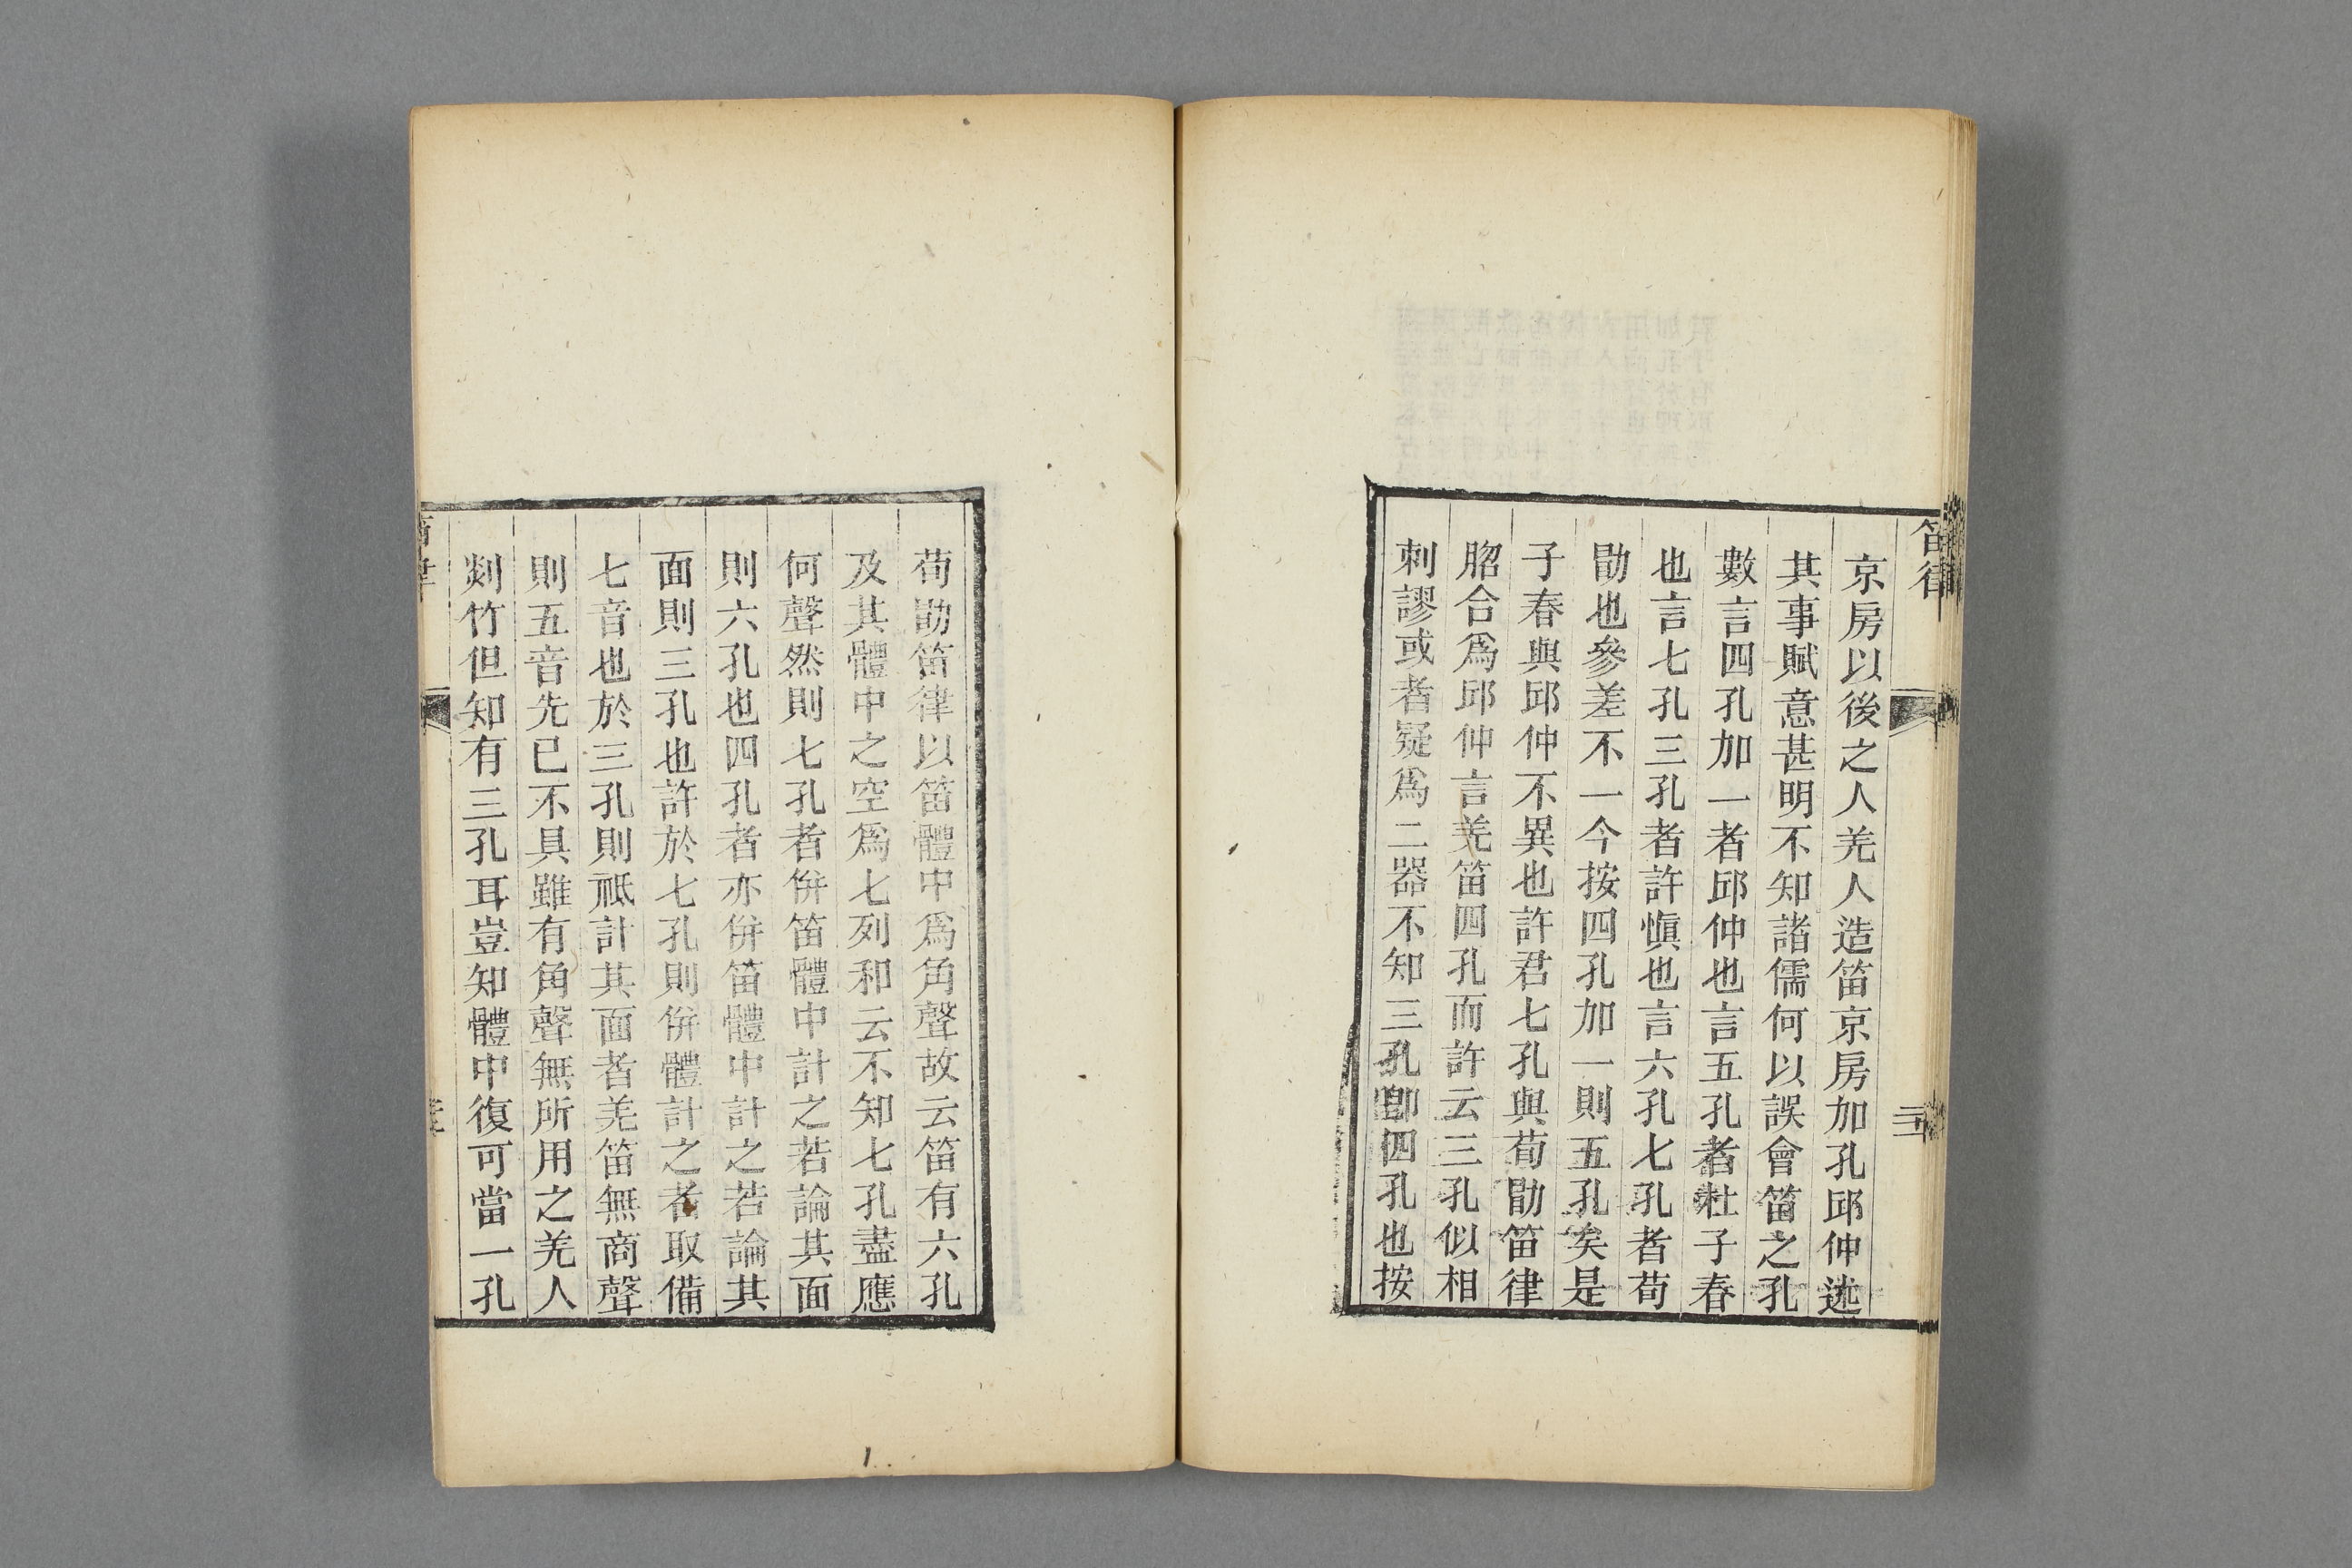 京房以後之人羌人造笛京房加孔邱仲述
其事賦意甚明不知諸儒何以誤會笛之孔
數言四孔加一者邱仲也言五孔者杜子春
也言七孔三孔者許愼也言六孔七孔者荀
勖也參差不一今按四孔加一則五孔矣是
子春與邱仲不異也許君七孔與荀勖笛律
脗合爲邱仲言羌笛四孔而許云三孔似相
刺謬或者疑爲二器不知三孔卽四孔也按
笛律
荀勖笛律以笛體中爲角聲故云笛有六孔
及其體中之空爲七列和云不知七孔盡應
何聲然則七孔者併笛體中計之若論其面
則六孔也四孔者亦併笛體中計之若論其
面則三孔也許於七孔則併體計之者取備
七音也於三孔則祗計其面者羌笛無商聲
則五音先已不具雖有角聲無所用之羌人
剡竹但知有三孔耳豈知體中復可當一孔